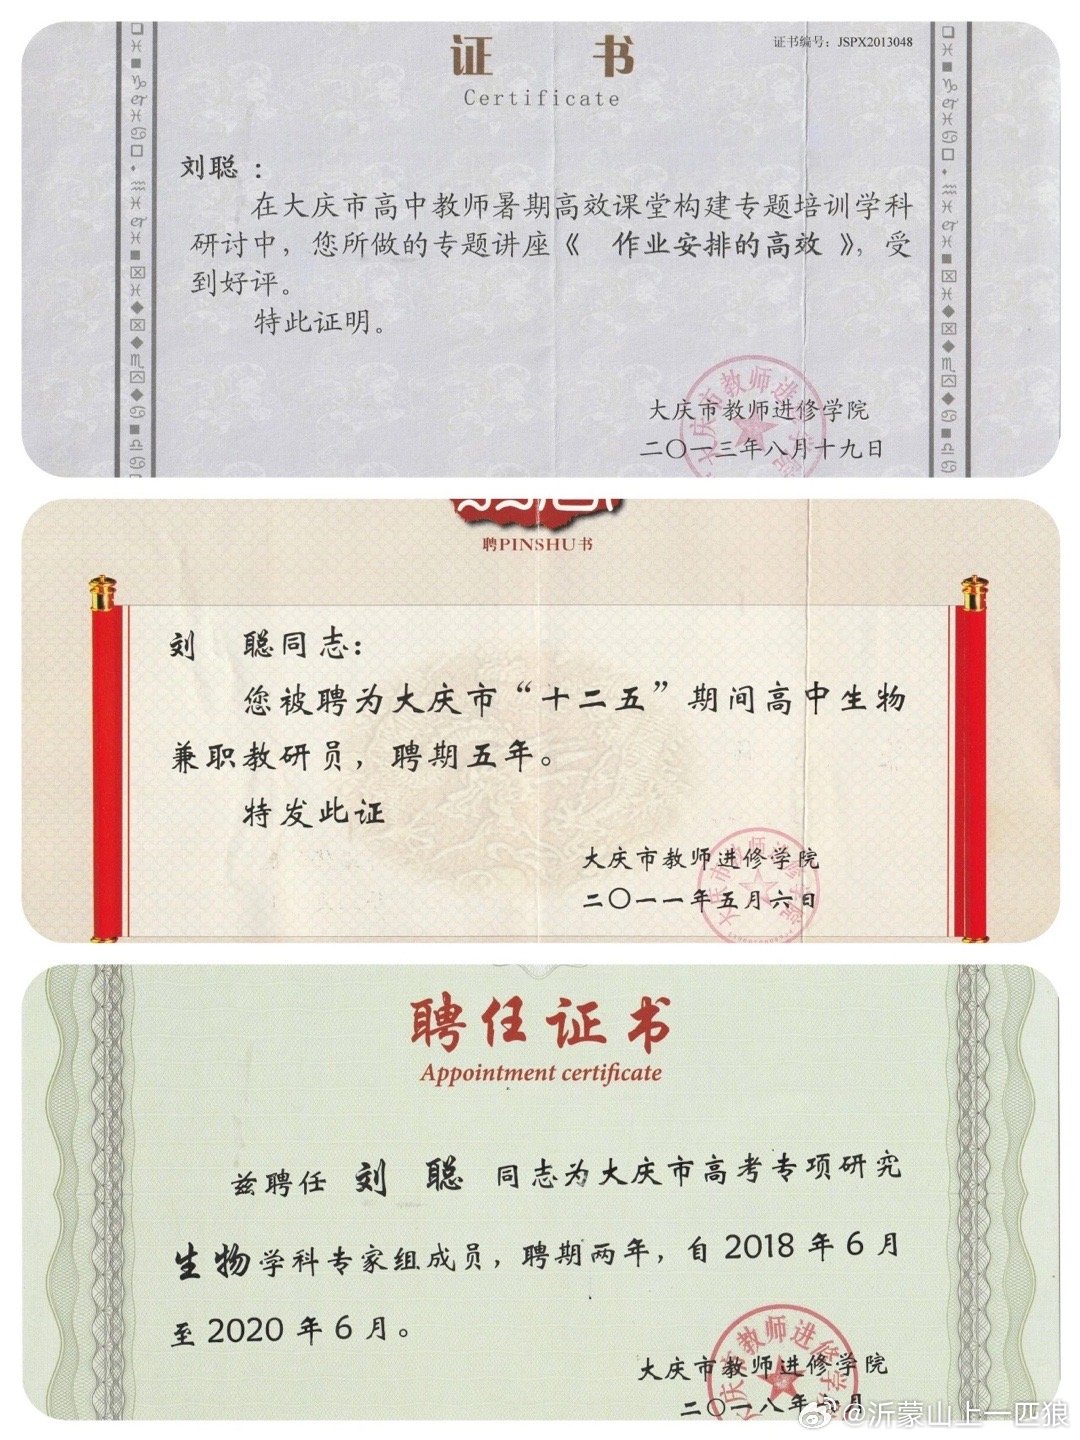 证书
证书编号：JSPX2013048
Certificate
刘聪：
在大庆市高中教师暑期高效课堂构建专题培训学科
研讨中，您所做的专题讲座《 作业安排的高效 》，受
到好评。
特此证明。
大庆市教师进修学院
大庆市教师进修学院
二〇一三年八月十九日
聘PINSHU书
刘 聪同志：
您被聘为大庆市“十二五”期间高中生物
兼职教研员，聘期五年。
特发此证
大庆市教师进修学院
大庆市教师进修学院
二〇一一年五月六日
聘任证书
Appointment certificate
兹聘任 刘 聪 同志为大庆市高考专项研究
生物学科专家组成员，聘期两年，自 2018 年 6 月
至 2020 年 6 月。
庆市教师进修学
大庆市教师进修学院
二〇一八年六月
@沂蒙山上一匹狼